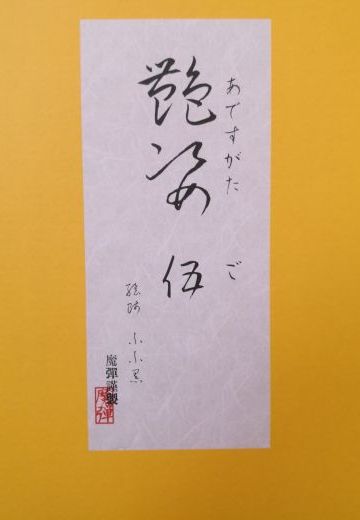 あですがた ご
艶姿 伍
絵師 小小黒
魔弾謹製